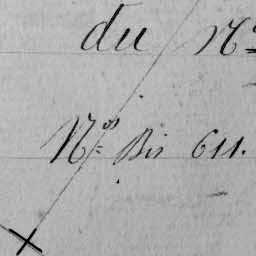 du N°
Nos Bis 611.